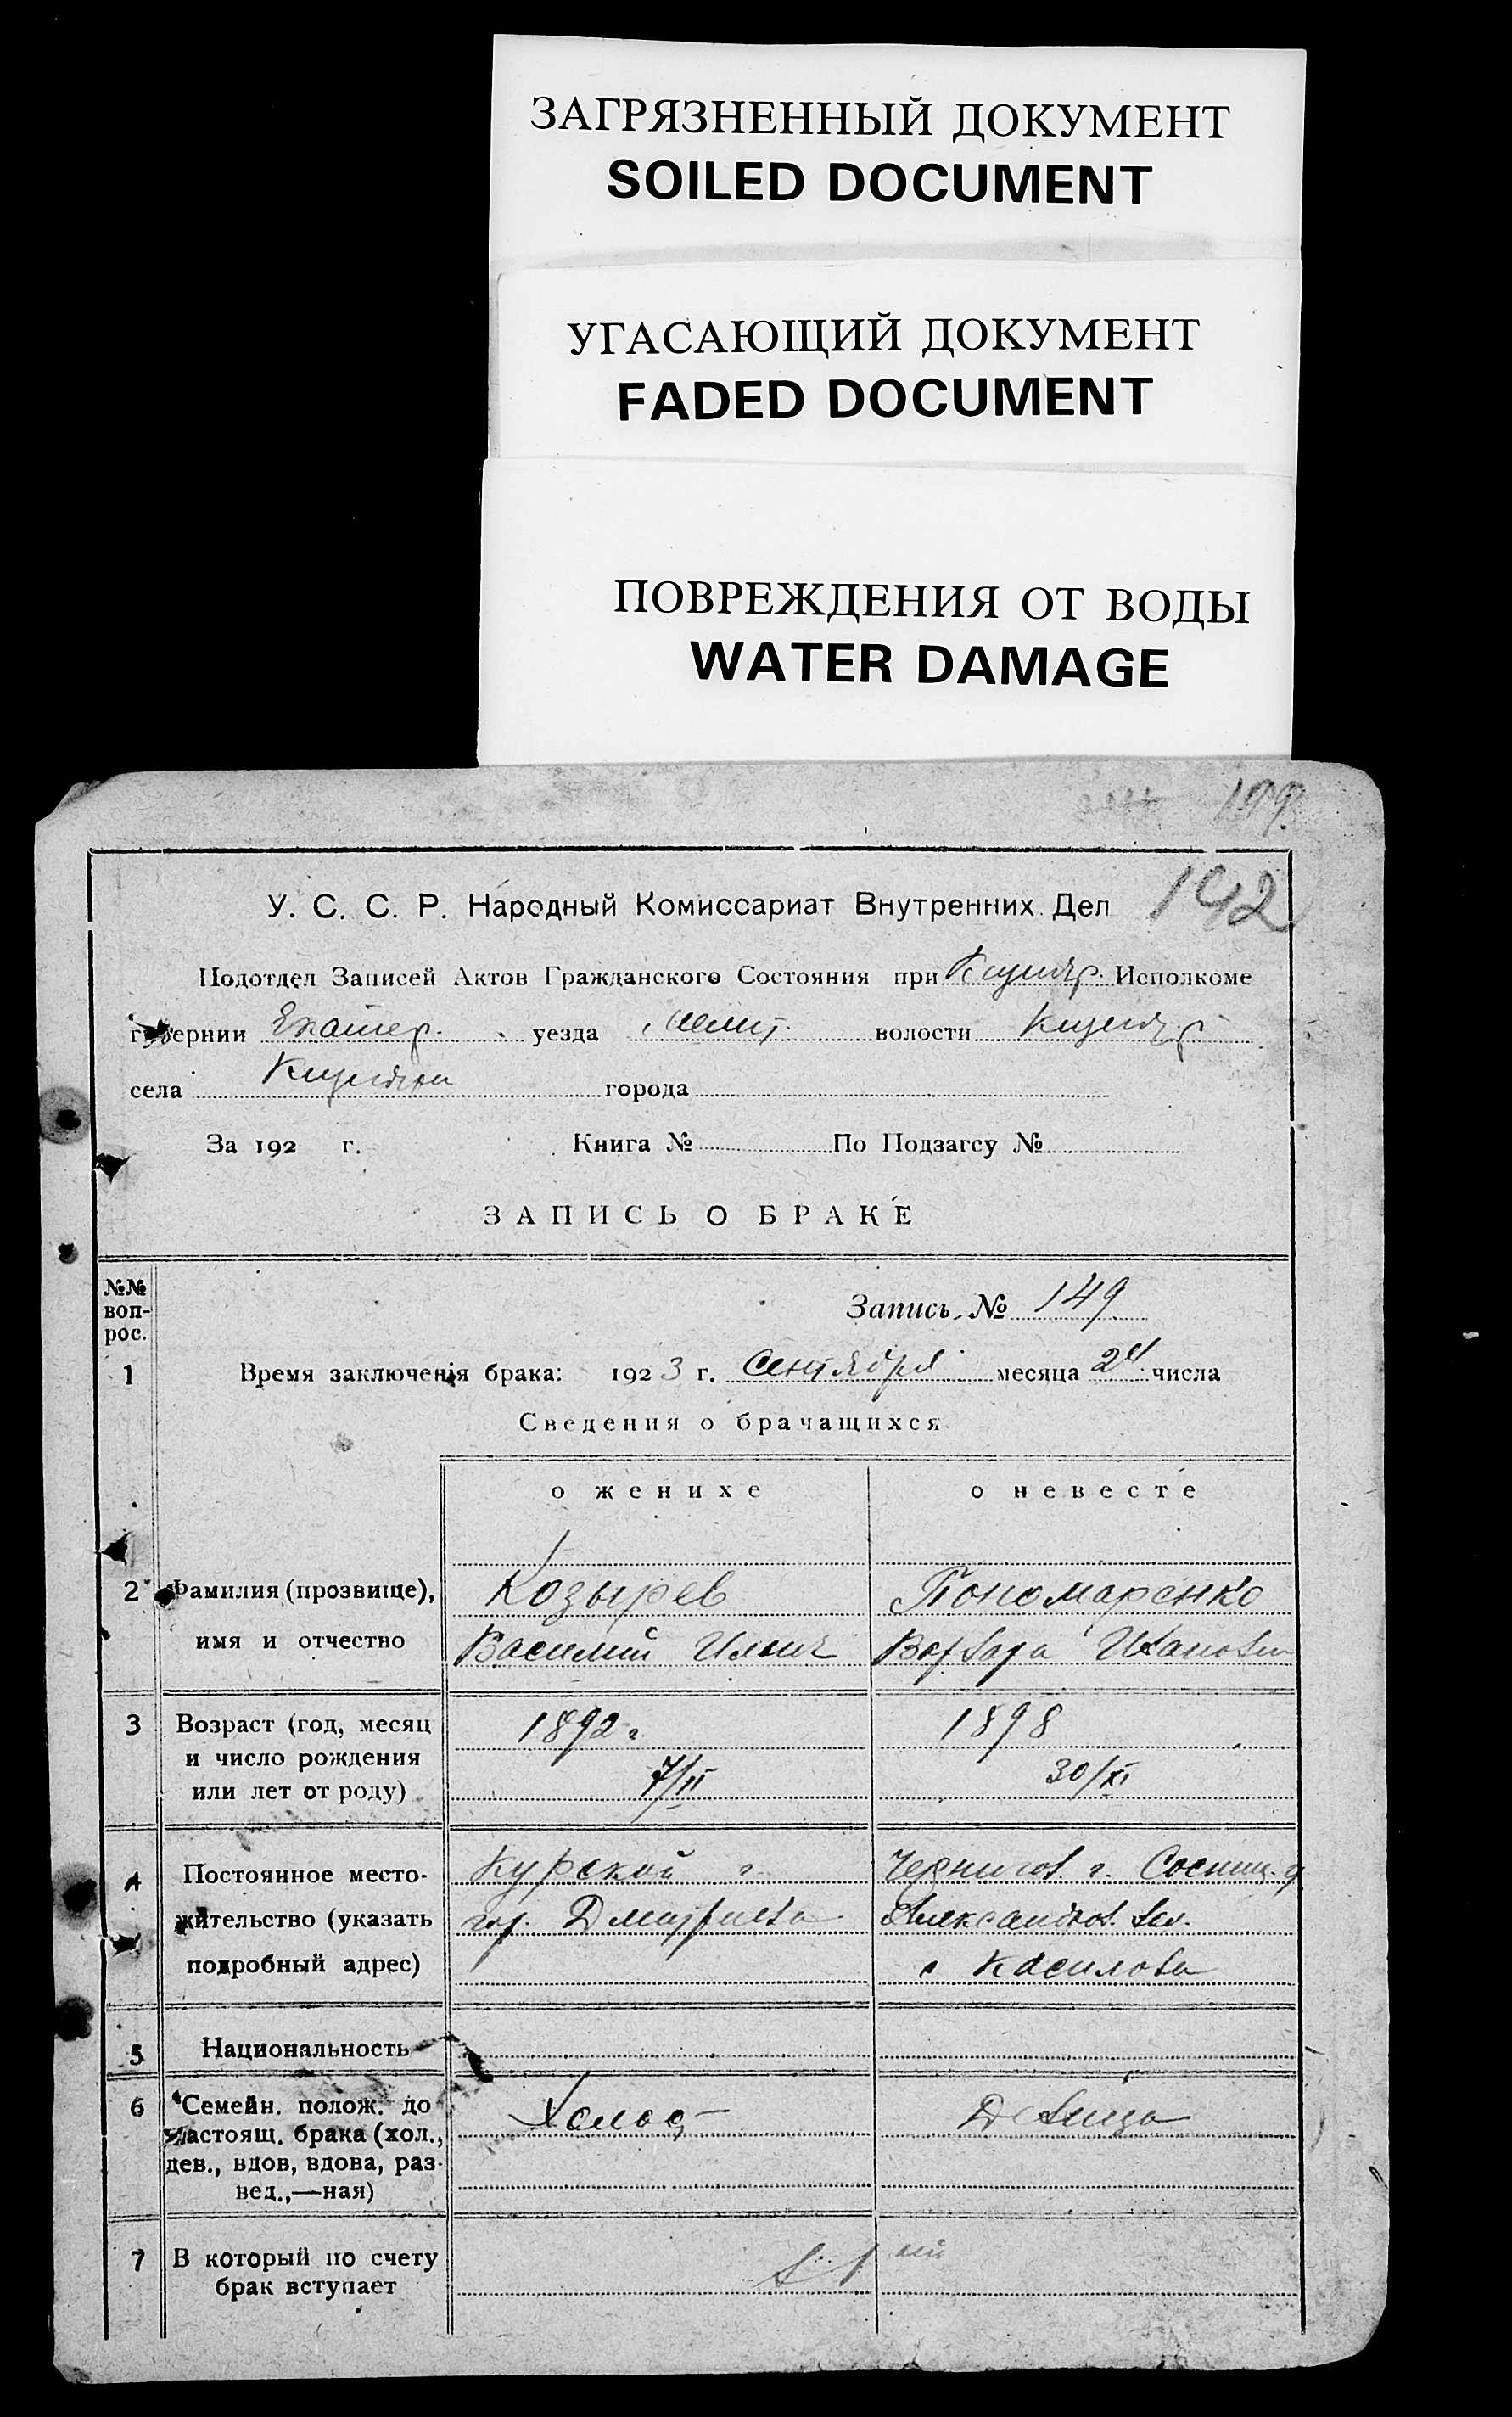 ЗАГРЯЗНЕННЫЙ ДОКУМЕНТ
SOILED DOCUMENT
УГАСАЮЩИЙ ДОКУМЕНТ
FADED DOCUMENT
ПОВРЕЖДЕНИЯ ОТ ВОДЫ
WATER DAMAGE
192
У. С. С. Р. Народный Комиссариат Внутренних Дел
Подотдел Записей Актов Гражданского Состояния при Исполкоме
губернии Екатер. уезда волости
села города
За 192 г. Книга № По Подзагсу №
ЗАПИСЬ О БРАКЕ
№№ воп-
рос.
Запись № 149
1 Время заключенія брака: 1923 г. Сентября месяца числа
Сведения о брачащихся
о женихе о невесте
2 Фамилия (прозвище), Козырев Пономаренко
имя и отчество Василий Ильич Варвара Ивановн
3 Возраст (год, месяц 1892 г 1898
и число рождения 7/II 30/XI
или лет от роду)
4 Постоянное место- Курской г. Чернигов. г. Сосниц. у
жительство (указать гор. Дмитриева Александров. вол.
подробный адрес) с Касилова
5 Национальность
6 Семейн. полож. до Холост Девица
настоящ. брака (хол.,
дев., вдов, вдова, раз-
вед.,—ная)
7 В который по счету в 1 ый
брак вступает